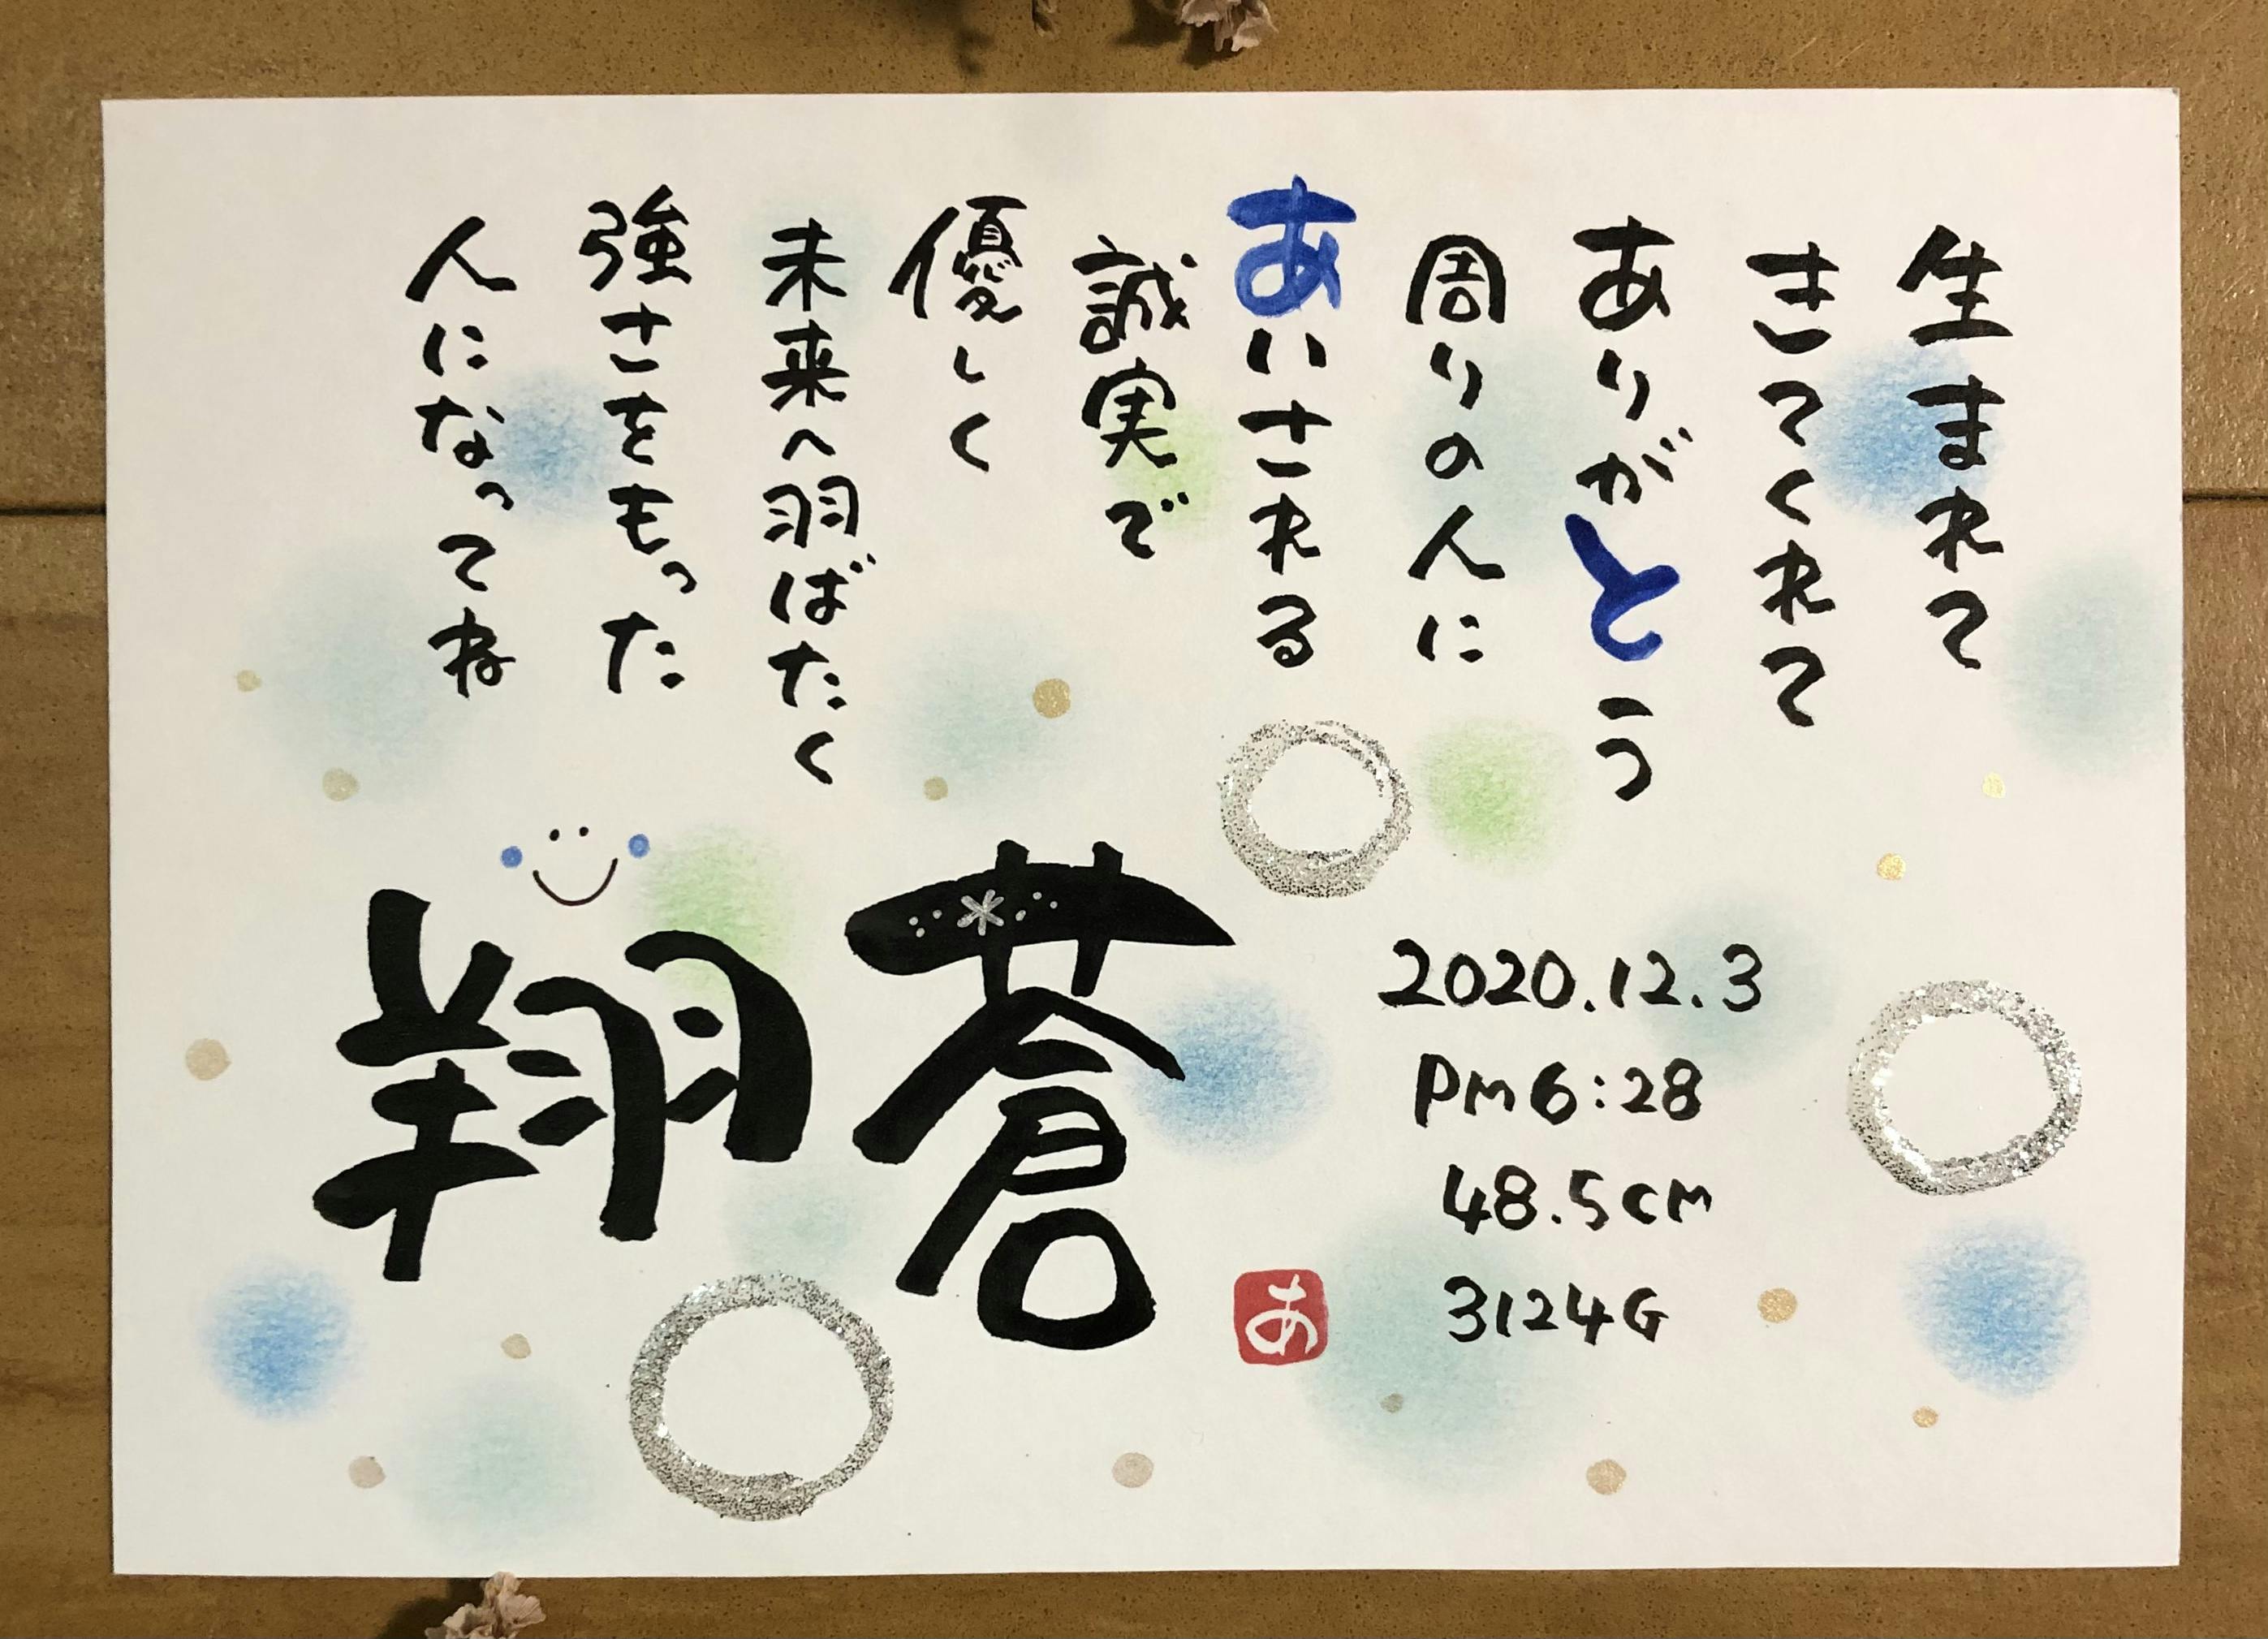 生まれて
きてくれて
ありがとう
周りの人に
あいされる
誠実で
優しく
未来へ羽ばたく
強さをもった
人になってね
蒼翔
2020.12.3
Pm6:28
48.5cm
3124G
あ